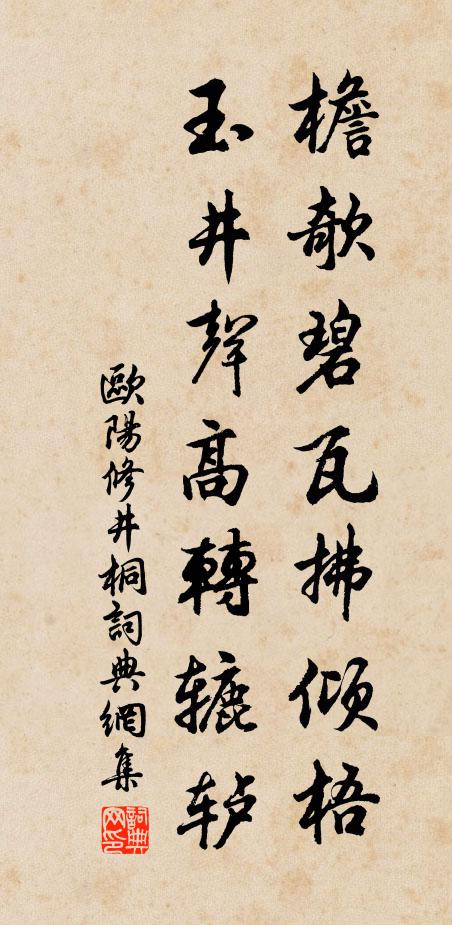 檐欹碧瓦拂倾梧
玉井聲高轉辘轳
歐陽修井桐詞典網集
詞典网印